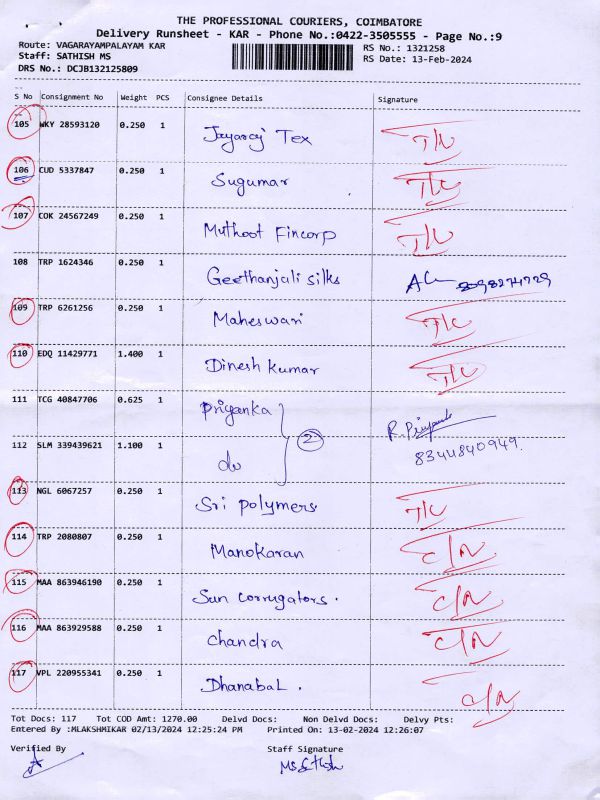 THE PROFESSIONAL COURIERS, COIMBATORE
Delivery Runsheet - KAR - Phone No.:0422-3505555 - Page No.:9
Route: VAGARAYAMPALAYAM KAR
RS No.: 1321258
Staff: SATHISH MS
RS Date: 13-Feb-2024
DRS No.: DCJB132125809
S No Consignment No Weight PCS Consignee Details Signature
105 WKY 28593120 0.250 1 Jayaraj Tex
106 CUD 5337847 0.250 1 Sugumar
107 COK 24567249 0.250 1 Muthoot Fincorp
108 TRP 1624346 0.250 1 Geethanjali silks
109 TRP 6261256 0.250 1 Maheswari
110 EDQ 11429771 1.400 1 Dinesh kumar
111 TCG 40847706 0.625 1 Priyanka R. Priyanka
112 SLM 339439621 1.100 1 do 2 8344840949.
113 NGL 6067257 0.250 1 Sri polymers
114 TRP 2080807 0.250 1 Manokaran C/N
115 MAA 863946190 0.250 1 Sun corrugators. C/N
116 MAA 863929588 0.250 1 chandra C/N
117 VPL 220955341 0.250 1 Dhanabal. C/N
Tot Docs: 117 Tot COD Amt: 1270.00 Delvd Docs: Non Delvd Docs: Delvy Pts:
Entered By :MLAKSHMIKAR 02/13/2024 12:25:24 PM Printed On: 13-02-2024 12:26:07
Verified By Staff Signature
MS Sathish